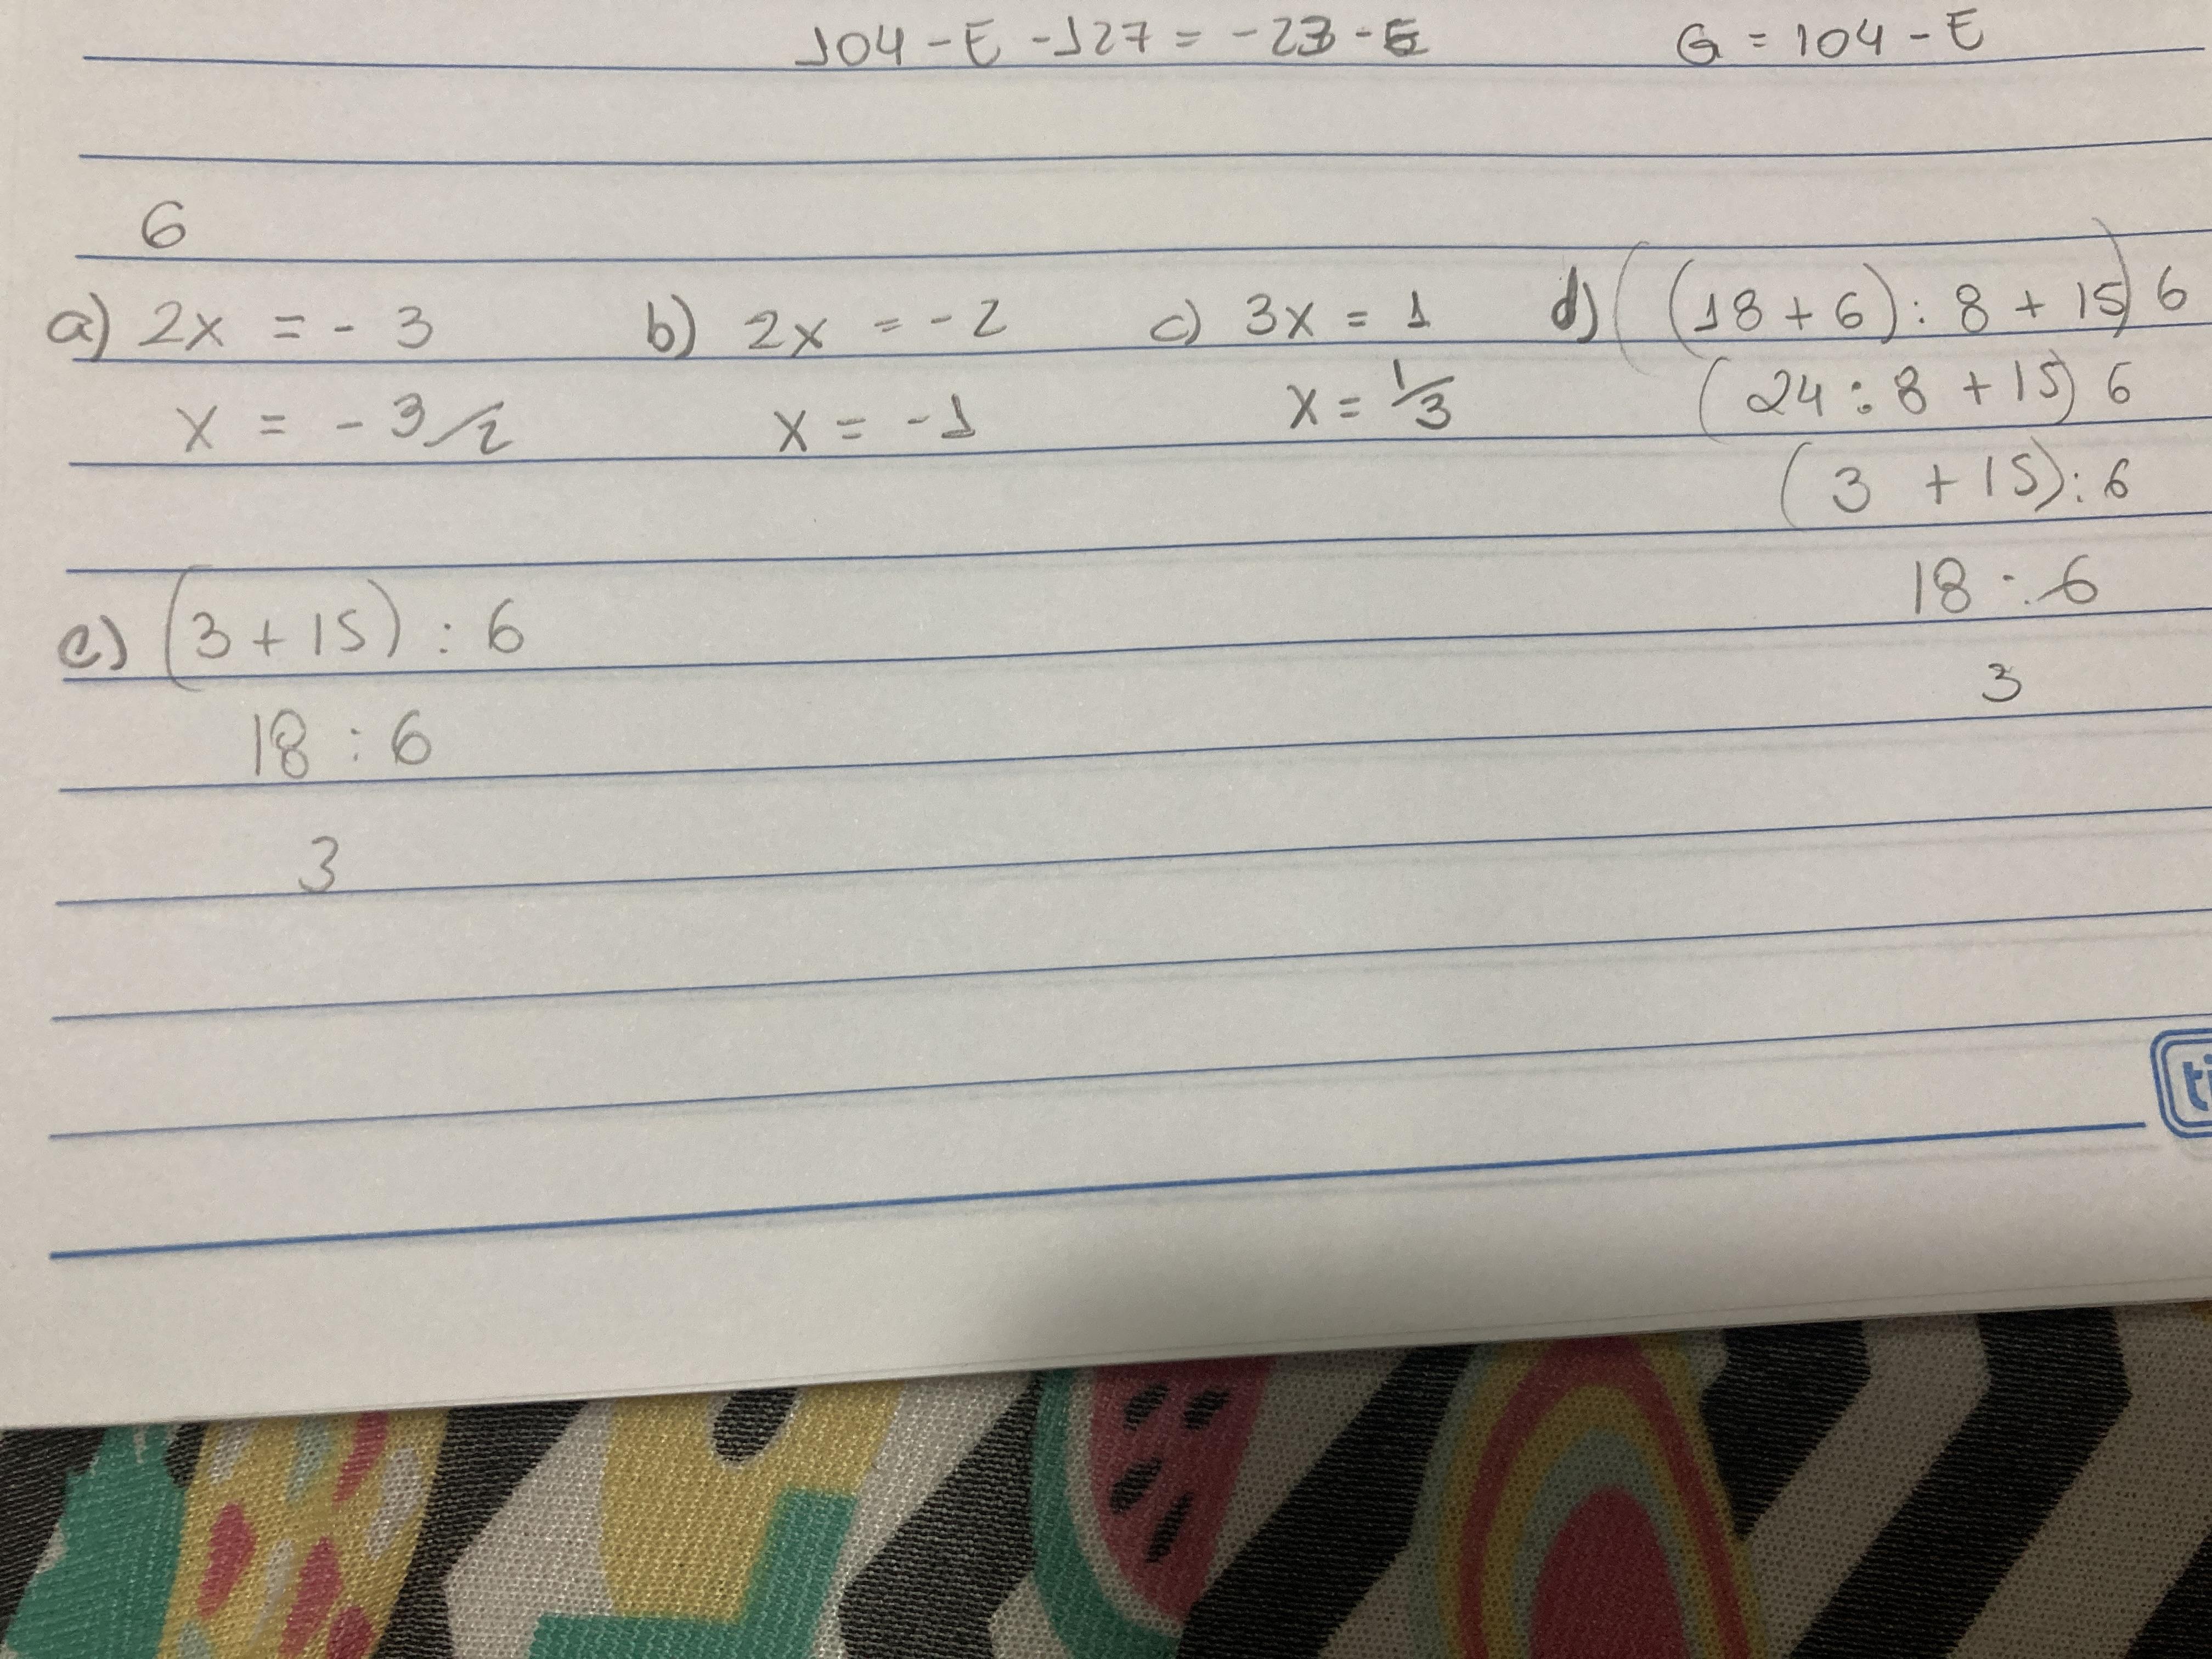 104 - E - 127 = - 23 - E G = 104 - E
6
a) 2x = - 3 b) 2x = - 2 c) 3x = 1 d) ((18 + 6) : 8 + 15) 6
x = - 3/2 x = - 1 x = 1/3 (24 : 8 + 15) 6
(3 + 15) : 6
18 : 6
3
e) (3 + 15) : 6
18 : 6
3
ti